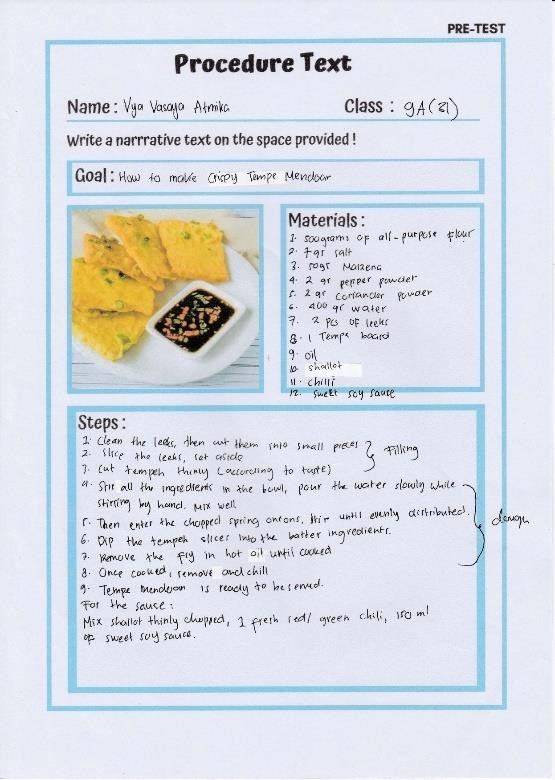 PRE-TEST
Procedure Text
Name : Vya Vasaya Atmika
Class : 9A (31)
Write a narrrative text on the space provided !
Goal : How to make Crispy Tempe Mendoar
Materials :
1. 500grams of all-purpose flour
2. 7 gr salt
3. 50gr Maizena
4. 2 gr pepper powder
5. 2 gr coriander powder
6. 400 gr water
7. 2 pcs of leeks
8. 1 Tempe board
9. oil
10. shallot
11. chilli
12. sweet soy sauce
Steps :
1. Clean the leeks, then cut them into small pieces
2. Slice the leeks, set aside
3. Cut tempeh thinly (according to taste)
Filling
4. Stir all the ingredients in the bowl, pour the water slowly while
stirring by hand. Mix well
5. Then enter the chopped spring onions, stir until evenly distributed.
6. Dip the tempeh slices into the batter ingredients.
7. Remove the fry in hot oil until cooked
8. Once cooked, remove and chill
9. Tempe mendoan is ready to be served.
dough
For the sauce :
Mix shallot thinly chopped, 1 fresh red/ green chili, 150 ml
of sweet soy sauce.